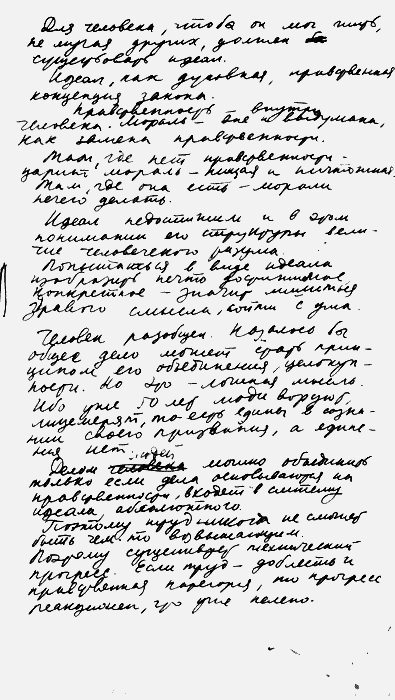 Для человека, чтоб он мог жить,
не мучая других, должен
существовать идеал.
Идеал, как духовная, нравственная
концепция закона.
Нравственность внутри
человека. Мораль вне и выдумана,
как замена нравственности.
Там, где нет нравственности –
царит мораль – нищая и ничтожная.
Там, где она есть – морали
нечего делать.
Идеал недостижим и в этом
понимании его структуры вели-
чие человеческого разума.
Попытаться в виде идеала
изобразить нечто достижимое,
конкретное – значит лишиться
здравого смысла, сойти с ума.
Человек разобщен. Казалось бы
общее дело может стать прин-
ципом его объединения, целокуп-
ности. Но это – ложная мысль.
Ибо уже 50 лет люди воруют,
лицемерят, то есть едины в созна-
нии своего призвания, а едине-
ния нет.
Делом людей можно объединить
только если дела основываются на
нравственности, входят в систему
идеала, абсолютного.
Поэтому труд никогда не сможет
быть чем-то возвышающим.
Поэтому существует технический
прогресс. Если труд – доблесть и
нравственная категория, то прогресс
реакционен, что уже нелепо.